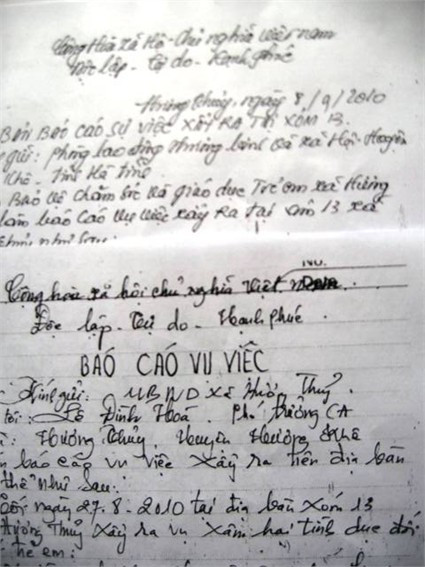 Cộng Hòa xã Hội Chủ nghĩa việt nam
Độc lập - Tự do - Hạnh phúc
Hương Thủy, ngày 8/9/2010
BẢN BÁO CÁO SỰ VIỆC XẢY RA TẠI XÓM 13.
gửi: Phòng lao động thương binh và xã Hội - Huyện
Khê - Tỉnh Hà tĩnh.
Bảo vệ chăm sóc và giáo dục Trẻ em xã Hương
làm báo cáo vụ việc xảy ra tại xóm 13 xã
Thủy như sau:
Cộng hòa xã hội chủ nghĩa Việt Nam
Độc lập - Tự do - Hạnh phúc.
BÁO CÁO VỤ VIỆC
Kính gửi: UBND xã Hương Thủy.
tôi: Lê Đình Hoá. Phó trưởng CA
Hương Thủy, Huyện Hương Khê
báo cáo vụ việc xảy ra trên địa bàn
thể như sau:
tối ngày 27-8-2010 tại địa bàn xóm 13
Hương Thủy xảy ra vụ xâm hại tình dục đối
trẻ em: